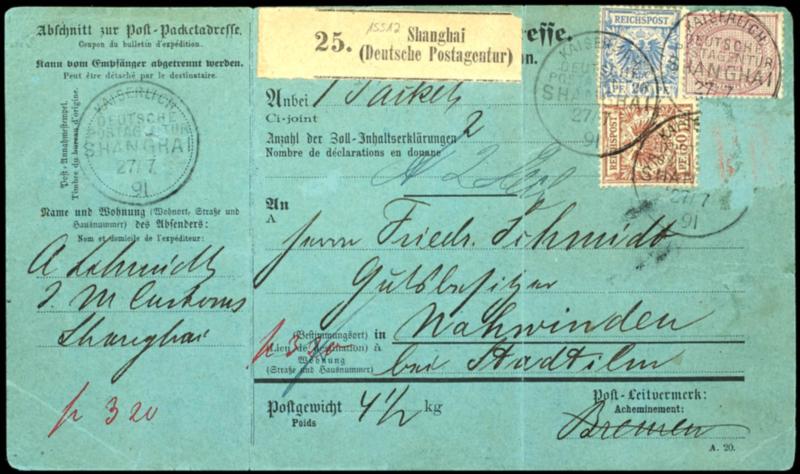 Abschnitt zur Post-Packetadresse.
Coupon du bulletin d'expédition.
Kann vom Empfänger abgetrennt werden.
Peut être détaché par le destinataire.
Post-Annahmestempel.
Timbre du bureau d'origine.
KAISERLICH
DEUTSCHE
POSTAGENTUR
SHANGHAI
27/7
91
Name und Wohnung (Wohnort, Straße und
Hausnummer) des Absenders:
Nom et domicile de l'expéditeur:
A Schmidt
I M Customs
Shanghai
p 3 20
15512
25.
Shanghai
(Deutsche Postagentur)
esse.
on.
REICHSPOST
20 PF
REICHSPOST
50
KAISERLICH
DEUTSCHE
SHANGHAI
27/7
91
KAISERLICH
DEUTSCHE
POSTAGENTUR
SHANGHAI
27/7
SHAN
27/7
91
Anbei 1 Packet
Ci-joint
Anzahl der Zoll-Inhaltserklärungen 2
Nombre de déclarations en douane
An
A
Herrn Friedr. Schmidt
Gutsbesitzer
(Bestimmungsort) in Nahwinden
(Lieu de destination) à
p 3 20
Wohnung bei Stadtilm
(Straße und Hausnummer)
Postgewicht 4 1/2 kg
Poids
Post-Leitvermerk:
Acheminement:
Bremen
A. 20.